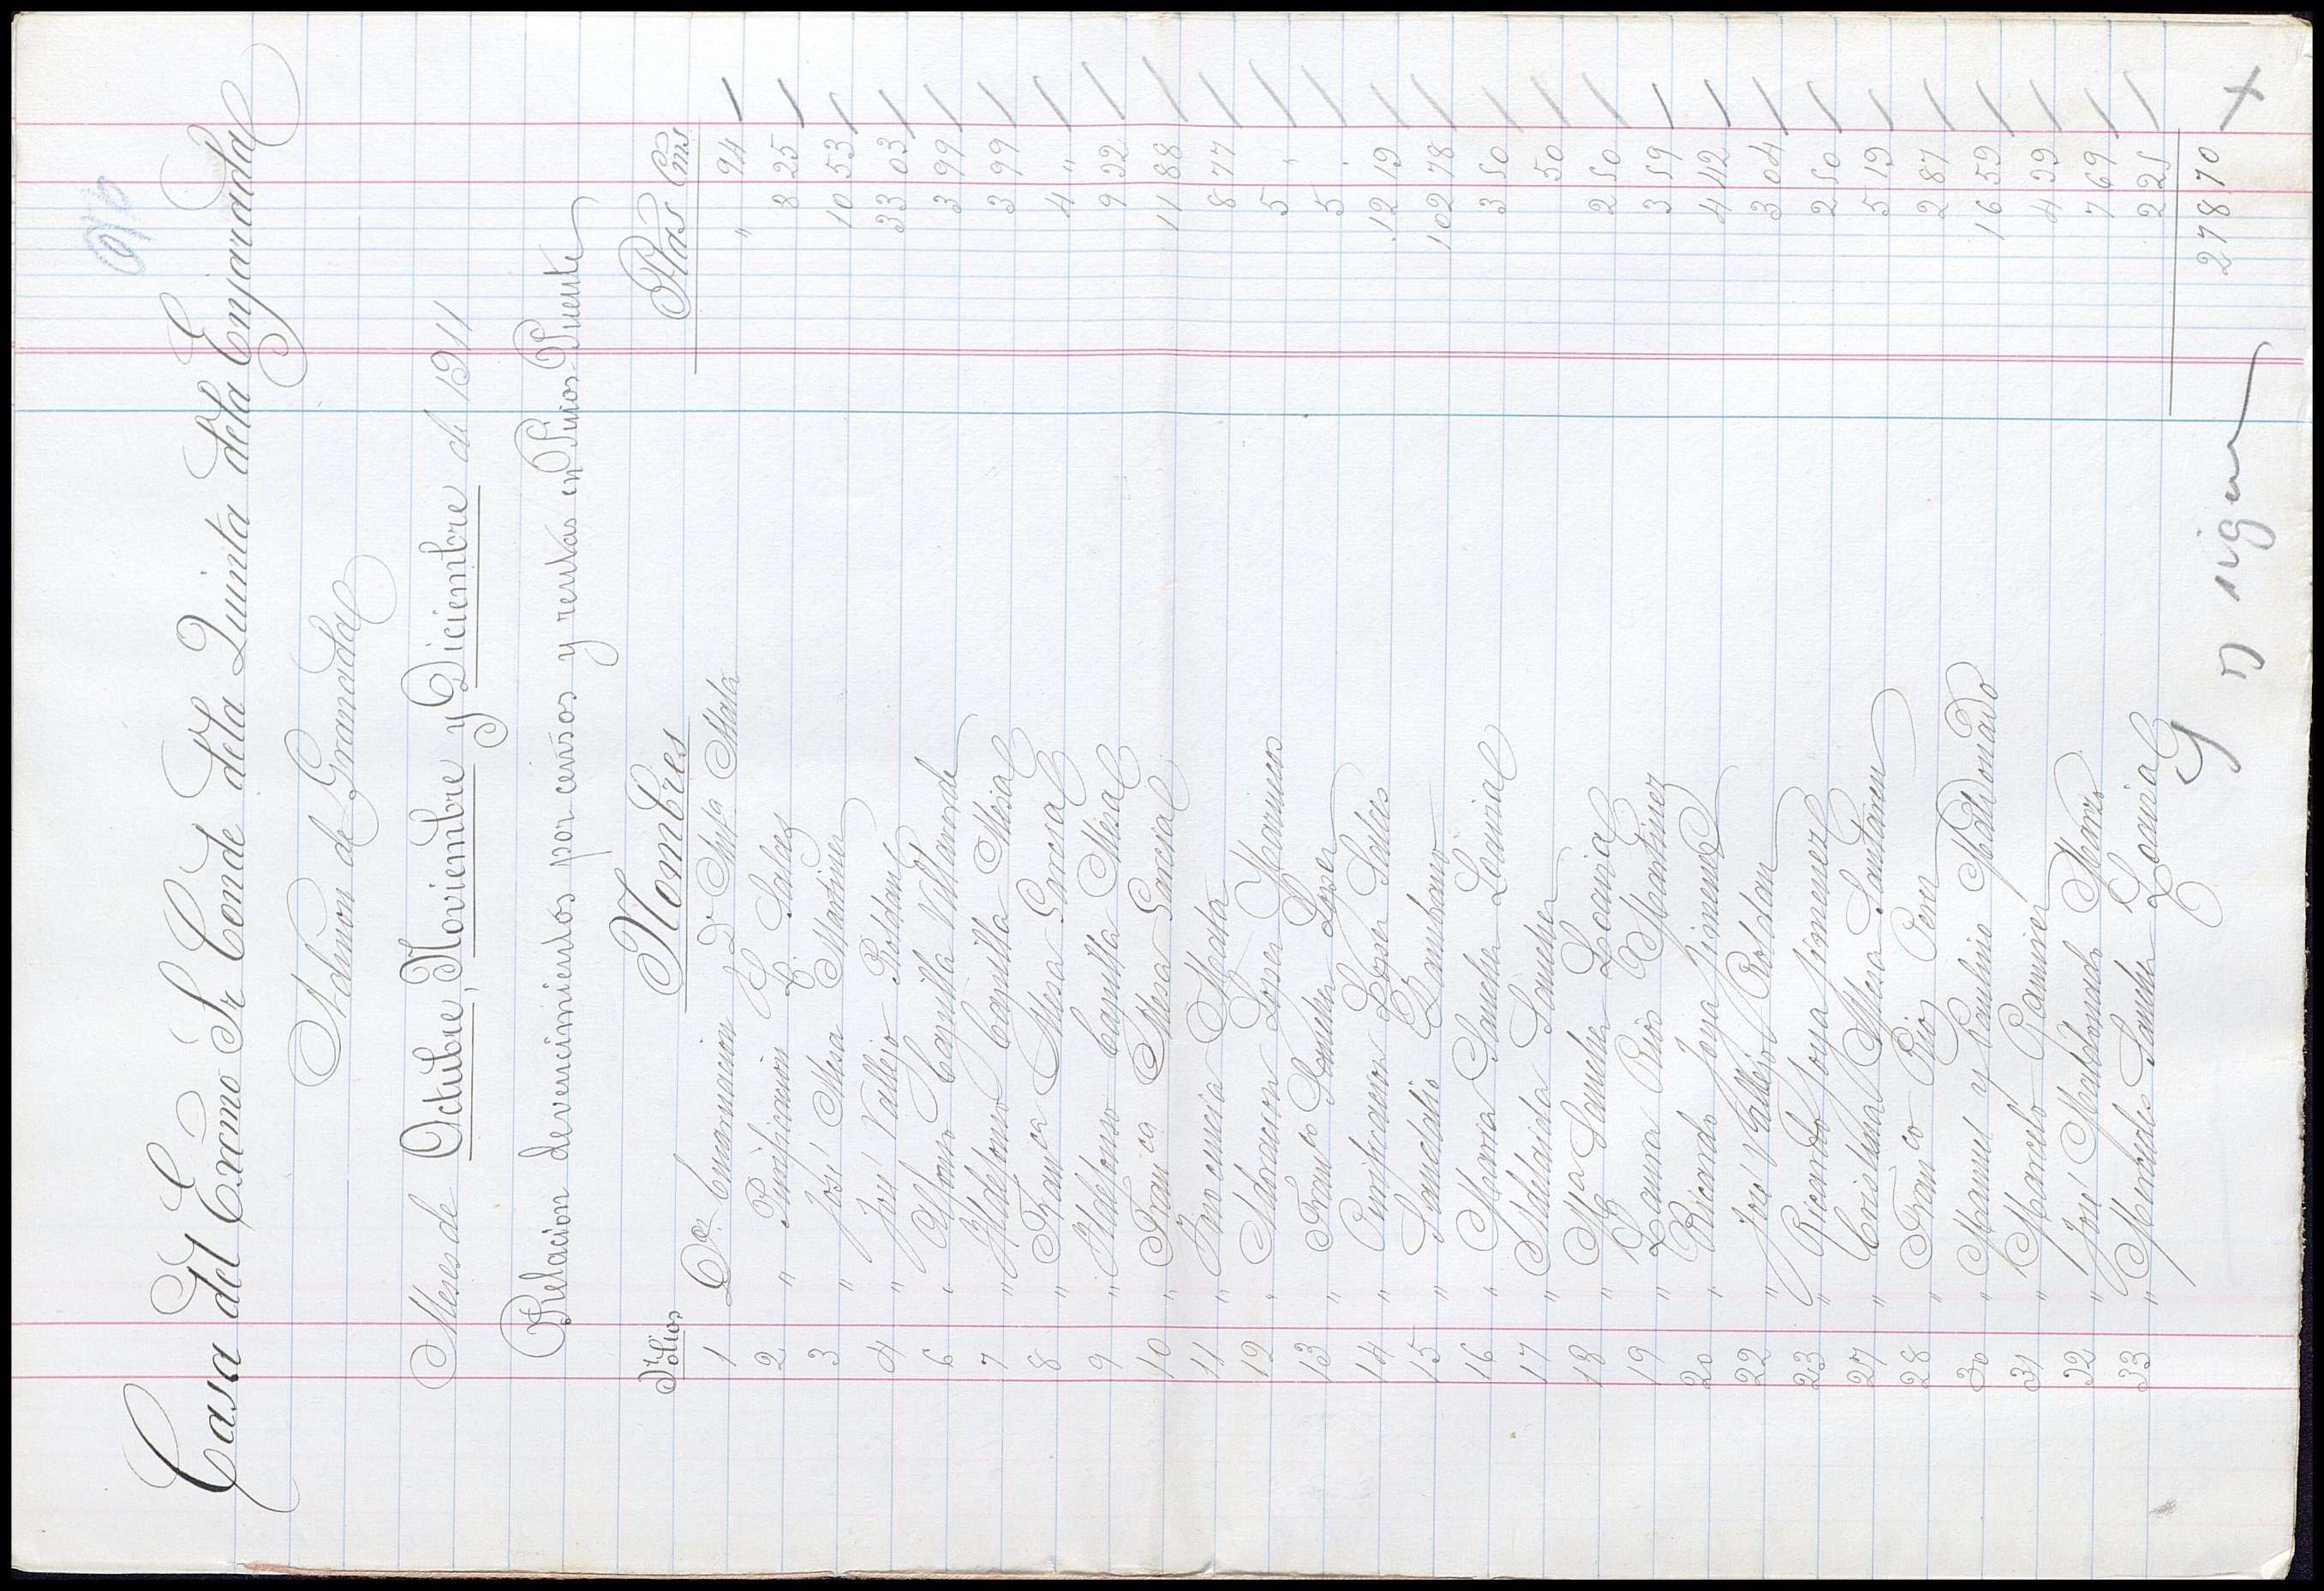 Casa del Excmo Sr Conde de la Quinta de la Enjarada
Admon de Granada
Meses de Octubre, Noviembre y Diciembre de 1911
Relacion de vencimientos por censos y rentas en Pinos-Puente
Folios Nombres Ptas Cms
1 Da. Encarnacion D Mata " 94
2 " Purificacion C. Salas 8 25
3 " José Mesa Martinez 10 53
4 " José Vallejo Roldan 33 03
6 " Alfonso Capilla Villaverde 3 99
7 " Ildefonso Capilla Mesa 3 99
8 " Franca Mesa Garcia 4 "
9 " Ildefonso Capilla Mesa 9 22
10 " Franca Mesa Garcia 11 88
11 " Inocencia Mata 8 77
12 " Adoracion Lopez 5 "
13 " Franco Sanchez Lopez 5 "
14 " Lopez 12 19
15 " Sandalio Zambrano 102 78
16 " Maria Sanchez Loaisa 3 50
17 " Adelaida Sanchez 50
18 " Ma Sanchez Loaisa 2 50
19 " Laura Rios Martinez 3 59
20 " Ricardo Joya Jimenez 4 42
22 " José Vallejo Roldan 3 04
23 " Ricardo Joya Jimenez 2 50
27 " Cristobal Mesa 5 19
28 " Franco Rios 2 87
30 " Manuel y Paulino Maldonado 16 59
31 " Marcelo Ramirez 4 39
32 " José Maldonado 7 69
33 " Mercedes Sanchez Loaisa 2 25
278 70 X